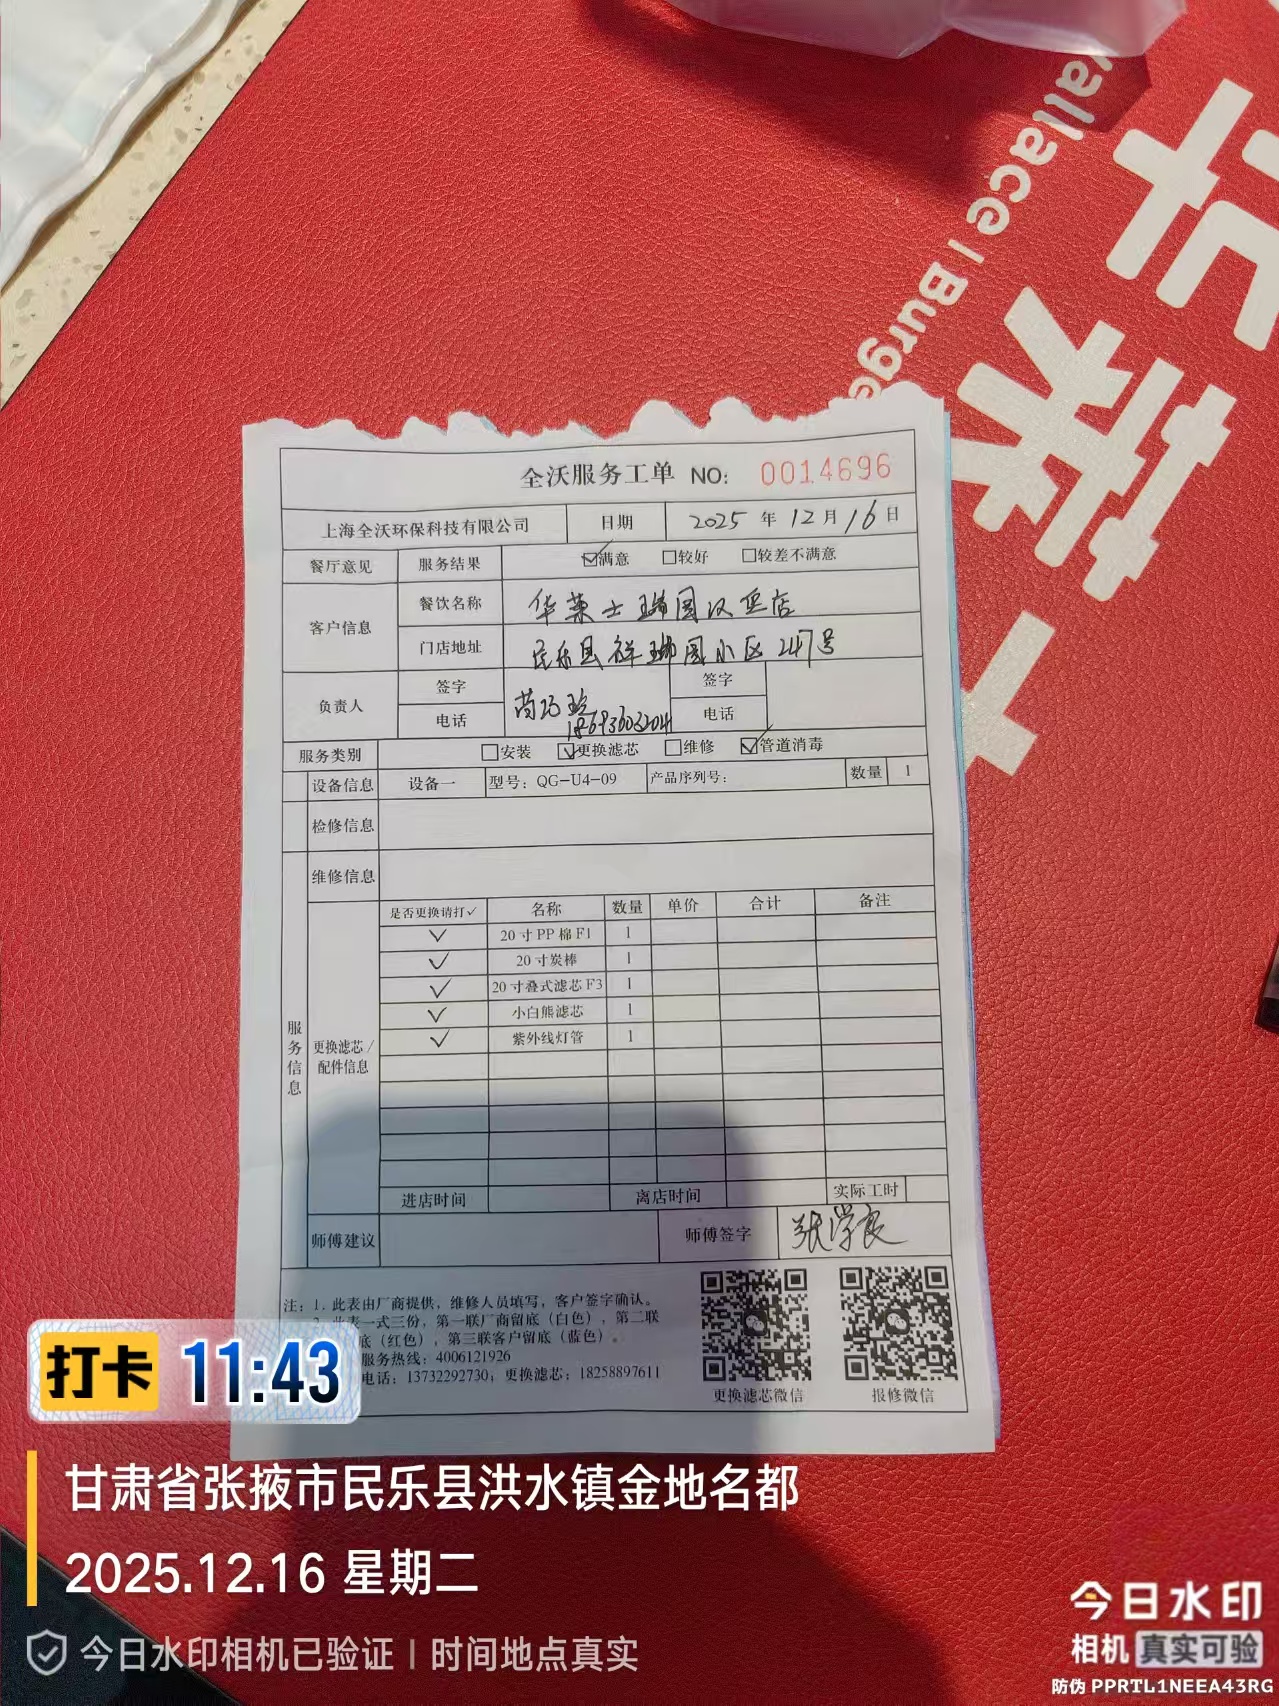 华莱士
Wallace | Burge
全沃服务工单 NO: 0014696
上海全沃环保科技有限公司 日期 2025 年 12 月 16 日
餐厅意见 服务结果 ☑满意 □较好 □较差不满意
客户信息 餐饮名称 华莱士瑞园汉堡店
门店地址 民乐县祥瑞园小区247号
负责人 签字 签字
电话 18693603204 电话
服务类别 □安装 ☑更换滤芯 □维修 ☑管道消毒
设备信息 设备一 型号: QG-U4-09 产品序列号: 数量 1
检修信息
维修信息
服务信息
更换滤芯/配件信息
是否更换请打✓ 名称 数量 单价 合计 备注
✓ 20寸PP棉F1 1
✓ 20寸炭棒 1
✓ 20寸叠式滤芯F3 1
✓ 小白熊滤芯 1
✓ 紫外线灯管 1
进店时间 离店时间 实际工时
师傅建议 师傅签字 张学良
注: 1. 此表由厂商提供, 维修人员填写, 客户签字确认。
此表一式三份, 第一联厂商留底(白色), 第二联
底(红色), 第三联客户留底(蓝色)。
服务热线: 4006121926
电话: 13732292730; 更换滤芯: 18258897611
更换滤芯微信 报修微信
打卡 11:43
甘肃省张掖市民乐县洪水镇金地名都
2025.12.16 星期二
今日水印相机已验证 | 时间地点真实
今日水印
相机 真实可验
防伪 PPRTL1NEEA43RG